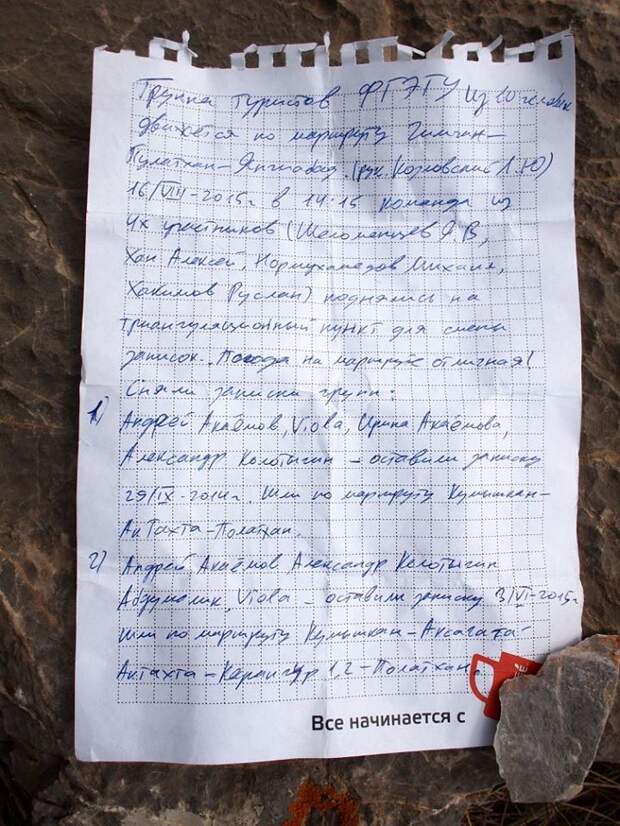 Группа туристов ФГЭТУ из 10 человек
движется по маршруту Гимчан-
Пулатхан-Янгиабад. (рук. Козловский Л.Ю)
16/VIII-2015г в 14:15 команда из
4х участников (Шеломенцев Я.В,
Хан Алексей, Нормухамедов Михаил,
Хакимов Руслан) поднялись на
триангуляционный пункт для смены
записок. Погода на маршруте отличная!
Сняли записки групп:
1) Андрей Акаёмов, Viola, Ирина Акаёмова,
Александр Колотыгин - оставили записку
29/IX-2014г. Шли по маршруту Кумышкан-
Актахта-Полатхан.
2) Андрей Акаёмов Александр Колотыгин
Абдумалик, Viola - оставили записку 3/VI-2015г
шли по маршруту Кумышкан-Аксагата-
Актахта-Каранкур 1,2-Полатхан.
Все начинается с